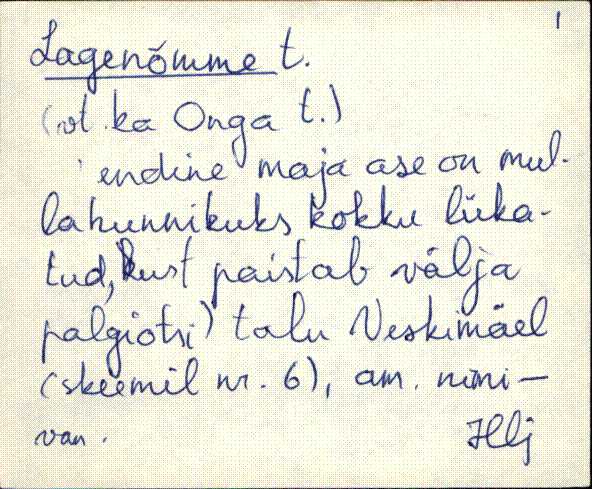 1
Lagenõmme t.
(vt. ka Onga t.)
endine maja ase on mul-
lahunnikuks kokku lüka-
tud, kust paistab välja
palgiotsi) talu Veskimäel
(skeemil nr. 6), am. nimi —
van. Hlj